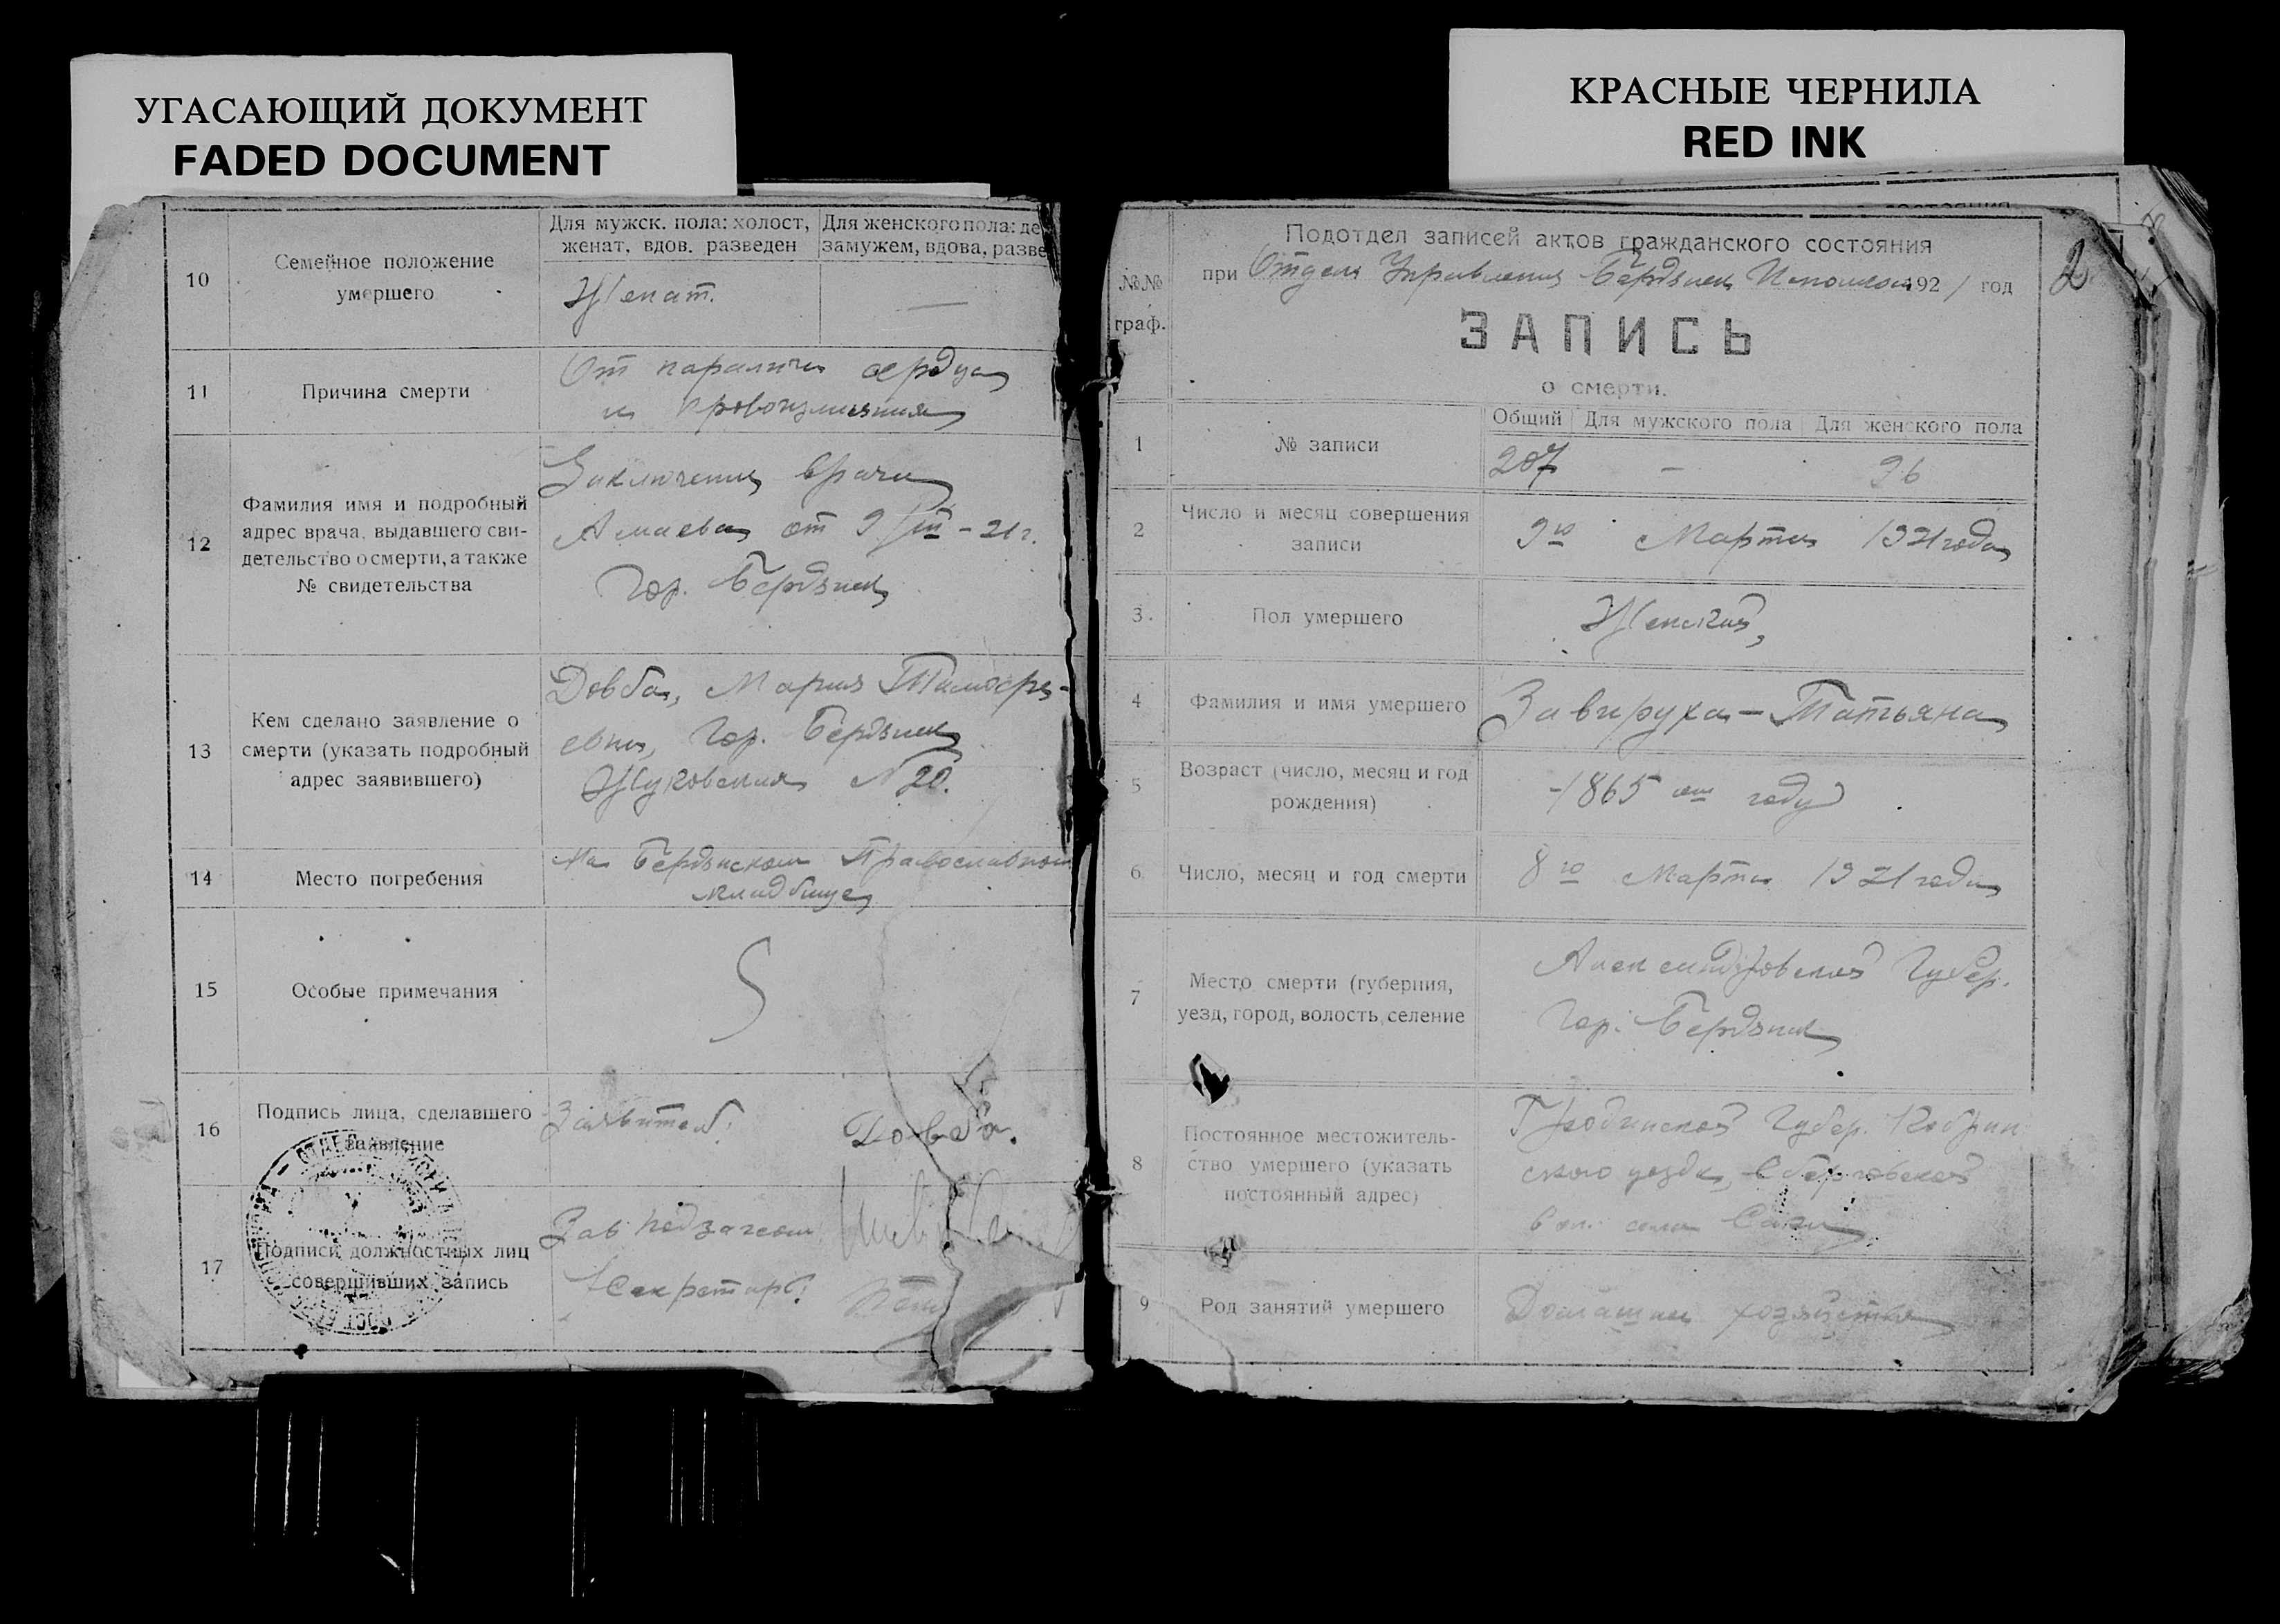 УГАСАЮЩИЙ ДОКУМЕНТ
FADED DOCUMENT
КРАСНЫЕ ЧЕРНИЛА
RED INK
10
Семейное положение
умершего
Для мужск. пола: холост,
женат, вдов. разведен
Для женского пола: де
замужем, вдова, разве
Женат.
—
11
Причина смерти
От паралича сердца
и кровоизлияния
12
Фамилия имя и подробный
адрес врача, выдавшего сви-
детельство о смерти, а также
№ свидетельства
Заключение врача
от 9/III - 21 г.
Гор. Бердянск
13
Кем сделано заявление о
смерти (указать подробный
адрес заявившего)
Довба, Мария Тимофе-
евна, Гор. Бердянск
Жуковская № 20.
14
Место погребения
На Бердянском Православном
кладбище
15
Особые примечания
16
Подпись лица, сделавшего
заявление
Заявитель: Довба.
17
Подписи должностных лиц
совершивших запись
Зав подзагсом
Секретарь:
№№
граф.
Подотдел записей актов гражданского состояния
при Отделе Управления Бердянск Исполком 1921 год
2
ЗАПИСЬ
о смерти.
1
№ записи
Общий Для мужского пола Для женского пола
207 — 96
2
Число и месяц совершения
записи
9го Марта 1921 года
3.
Пол умершего
Женский
4
Фамилия и имя умершего
Завируха - Татьяна
5
Возраст (число, месяц и год
рождения)
-1865 ом году
6
Число, месяц и год смерти
8го Марта 1921 года
7
Место смерти (губерния,
уезд, город, волость, селение
Александровской Губер.
Гор. Бердянск
8
Постоянное местожитель-
ство умершего (указать
постоянный адрес)
Гродненской Губер. Кобрин
ского уезда,
вол. села
9
Род занятий умершего
Домашнее хозяйство